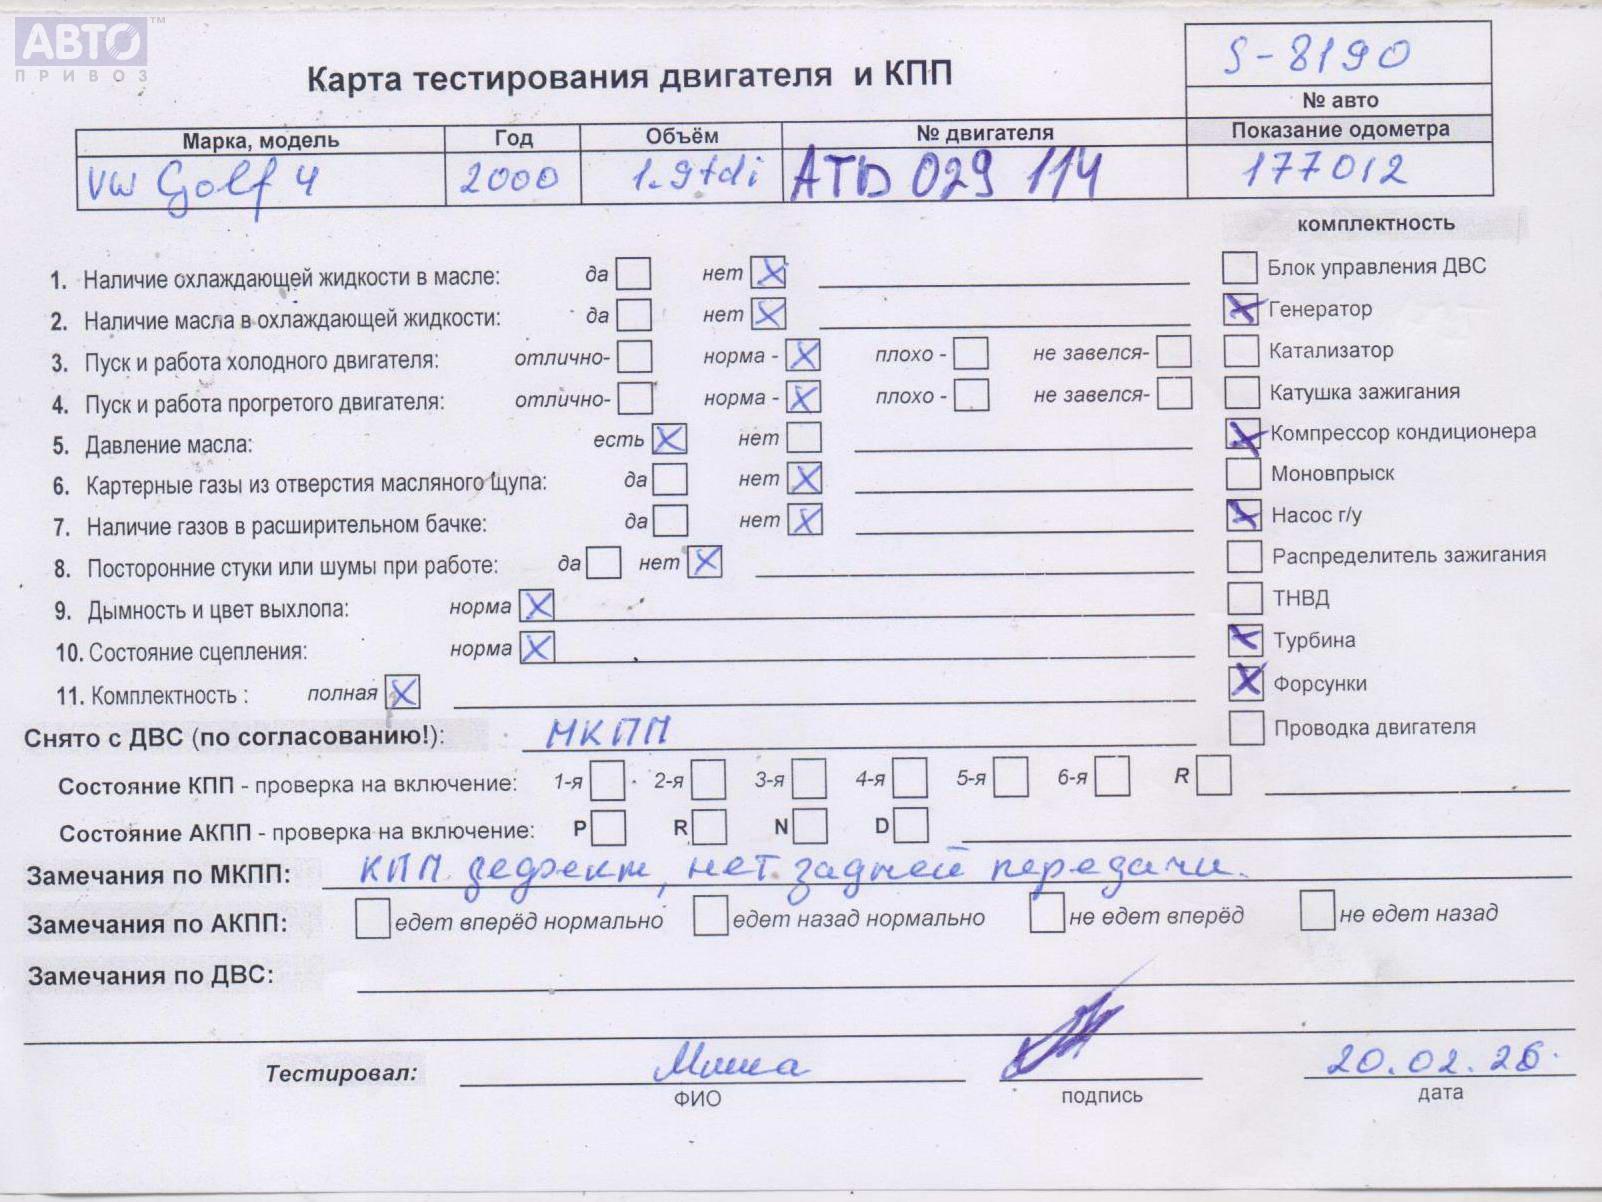 АВТО ™
ПРИВОЗ
S-8190
Карта тестирования двигателя и КПП
№ авто
Марка, модель Год Объём № двигателя Показание одометра
VW Golf 4 2000 1.9tdi ATD 029 114 177012
комплектность
1. Наличие охлаждающей жидкости в масле: да нет X
Блок управления ДВС
2. Наличие масла в охлаждающей жидкости: да нет X
X Генератор
3. Пуск и работа холодного двигателя: отлично- норма - X плохо - не завелся-
Катализатор
4. Пуск и работа прогретого двигателя: отлично- норма - X плохо - не завелся-
Катушка зажигания
5. Давление масла: есть X нет
X Компрессор кондиционера
6. Картерные газы из отверстия масляного щупа: да нет X
Моновпрыск
7. Наличие газов в расширительном бачке: да нет X
X Насос г/у
8. Посторонние стуки или шумы при работе: да нет X
Распределитель зажигания
9. Дымность и цвет выхлопа: норма X
ТНВД
10. Состояние сцепления: норма X
X Турбина
11. Комплектность : полная X
X Форсунки
Снято с ДВС (по согласованию!): МКПП
Проводка двигателя
Состояние КПП - проверка на включение: 1-я 2-я 3-я 4-я 5-я 6-я R
Состояние АКПП - проверка на включение: P R N D
Замечания по МКПП: КПП дефект, нет задней передачи.
Замечания по АКПП: едет вперёд нормально едет назад нормально не едет вперёд не едет назад
Замечания по ДВС:
Тестировал: Миша 20.02.26.
ФИО подпись дата